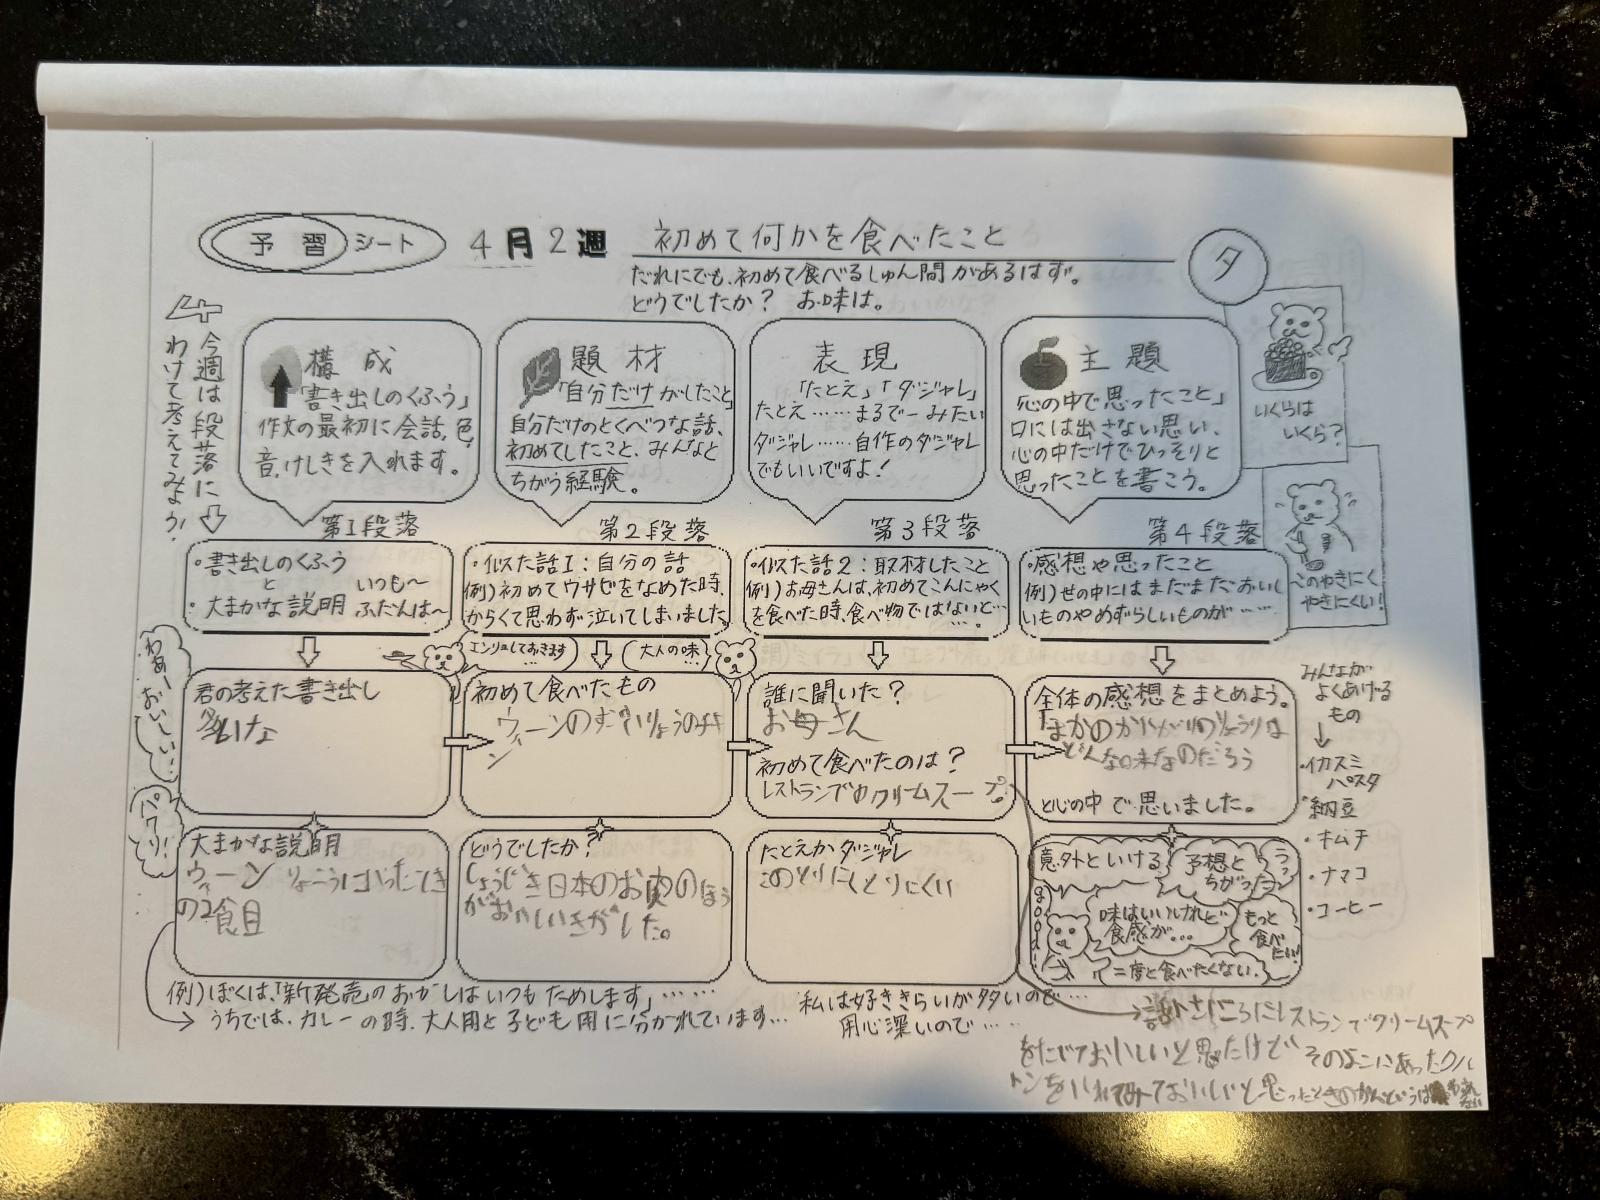 予習シート 4月2週 初めて何かを食べたこと
タ
だれにでも、初めて食べるしゅん間があるはず。
どうでしたか? お味は。
4
今週は段落に
わけて考えてみよう!
構成
「書き出しのくふう」
作文の最初に会話、色、
音、けしきを入れます。
題材
「自分だけがしたこと」
自分だけのとくべつな話、
初めてしたこと、みんなと
ちがう経験。
表現
「たとえ」「ダジャレ」
たとえ……まるでーみたい
ダジャレ……自作のダジャレ
でもいいですよ!
主題
「心の中で思ったこと」
口には出さない思い、
心の中だけでひっそりと
思ったことを書こう。
いくらは
いくら?
このやきにく
やきにくい!
第1段落
・書き出しのくふう
と
・大まかな説明
いつも〜
ふだんは〜
第2段落
・似た話1:自分の話
例)初めてワサビをなめた時、
からくて思わず泣いてしまいました。
第3段落
・似た話2:取材したこと
例)お母さんは、初めてこんにゃく
を食べた時、食べ物ではないと…
第4段落
・感想や思ったこと
例)世の中にはまだまだおいし
いものやめずらしいものが……
わあー
おいしい…
パクリ!
エンリョしておきます…
大人の味…
君の考えた書き出し
初めて食べたもの
ウィーンの
誰に聞いた?
お母さん
初めて食べたのは?
レストランでのクリームスープ
全体の感想をまとめよう。
どんな味なのだろう
と心の中で思いました。
みんなが
よくあげる
もの
・イカスミ
パスタ
・納豆
・キムチ
・ナマコ
・コーヒー
大まかな説明
ウィーンりょこうにいったとき
の2食目
どうでしたか?
しょうじき日本のお肉のほう
がおいしいきがした。
たとえかダジャレ
このとりにくとりにくい
意外といける
予想と
ちがった
味はいいけれど
食感が…
もっと
食べたい!
二度と食べたくない。
例)ぼくは、「新発売のおかしはいつもためします」……
うちでは、カレーの時、大人用と子ども用に分かれています…
私は好ききらいが多いので…
用心深いので……
にレストランでクリームスープ
をたべておいしいと思ったけど そのよこにあったクル
トンをいれてみておいしいと思ったときの